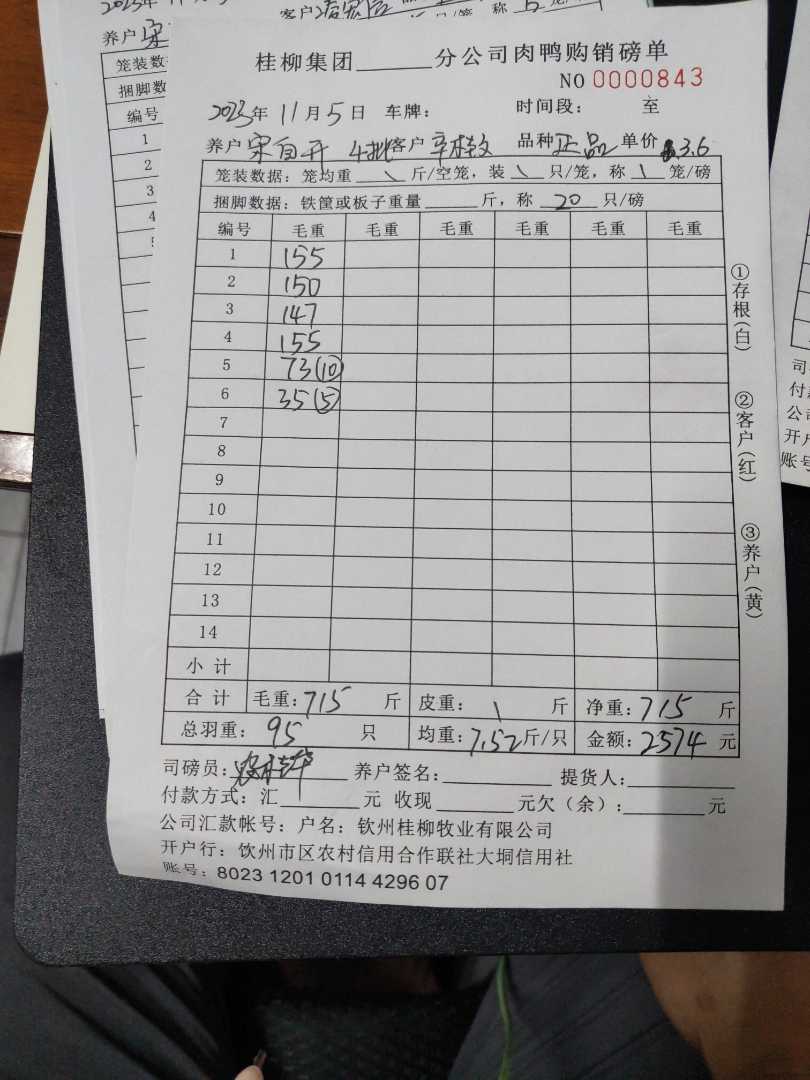 桂柳集团______分公司肉鸭购销磅单
NO 0000843
2023年 11月5日 车牌: 时间段: 至
养户 宋自开 4批 客户 品种 正品 单价 3.6
笼装数据: 笼均重 \ 斤/空笼, 装 \ 只/笼, 称 \ 笼/磅
捆脚数据: 铁筐或板子重量______斤, 称 20 只/磅
编号 毛重 毛重 毛重 毛重 毛重 毛重
1 155
2 150
3 147
4 155
5 73(10)
6 35(5)
7
8
9
10
11
12
13
14
小计
合计 毛重: 715 斤 皮重: \ 斤 净重: 715 斤
总羽重: 95 只 均重: 7.52 斤/只 金额: 2574 元
司磅员: 养户签名: 提货人:
付款方式: 汇______元 收现______元欠(余):______元
公司汇款帐号: 户名: 钦州桂柳牧业有限公司
开户行: 饮州市区农村信用合作联社大垌信用社
账号: 8023 1201 0114 4296 07
①存根(白)
②客户(红)
③养户(黄)
养户 宋
笼装数
捆脚数
编号
1
2
3
4
司
付款
公司
开户
账号